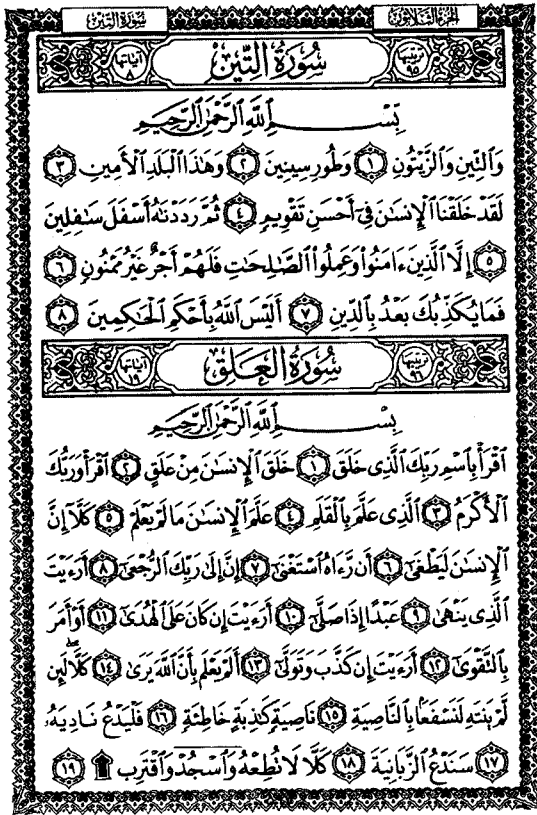 الجزء الثلاثون سورة التين
ترتيبها ٩٥ سُورَةُ التِّينِ آياتها ٨
بِسْمِ اللَّهِ الرَّحْمَٰنِ الرَّحِيمِ
وَالتِّينِ وَالزَّيْتُونِ ١ وَطُورِ سِينِينَ ٢ وَهَٰذَا الْبَلَدِ الْأَمِينِ ٣
لَقَدْ خَلَقْنَا الْإِنسَٰنَ فِىٓ أَحْسَنِ تَقْوِيمٍ ٤ ثُمَّ رَدَدْنَٰهُ أَسْفَلَ سَٰفِلِينَ
٥ إِلَّا الَّذِينَ ءَامَنُوا۟ وَعَمِلُوا۟ الصَّٰلِحَٰتِ فَلَهُمْ أَجْرٌ غَيْرُ مَمْنُونٍ ٦
فَمَا يُكَذِّبُكَ بَعْدُ بِالدِّينِ ٧ أَلَيْسَ اللَّهُ بِأَحْكَمِ الْحَٰكِمِينَ ٨
ترتيبها ٩٦ سُورَةُ الْعَلَقِ آياتها ١٩
بِسْمِ اللَّهِ الرَّحْمَٰنِ الرَّحِيمِ
اقْرَأْ بِاسْمِ رَبِّكَ الَّذِى خَلَقَ ١ خَلَقَ الْإِنسَٰنَ مِنْ عَلَقٍ ٢ اقْرَأْ وَرَبُّكَ
الْأَكْرَمُ ٣ الَّذِى عَلَّمَ بِالْقَلَمِ ٤ عَلَّمَ الْإِنسَٰنَ مَا لَمْ يَعْلَمْ ٥ كَلَّآ إِنَّ
الْإِنسَٰنَ لَيَطْغَىٰٓ ٦ أَن رَّءَاهُ اسْتَغْنَىٰٓ ٧ إِنَّ إِلَىٰ رَبِّكَ الرُّجْعَىٰٓ ٨ أَرَءَيْتَ
الَّذِى يَنْهَىٰ ٩ عَبْدًا إِذَا صَلَّىٰٓ ١٠ أَرَءَيْتَ إِن كَانَ عَلَى الْهُدَىٰٓ ١١ أَوْ أَمَرَ
بِالتَّقْوَىٰٓ ١٢ أَرَءَيْتَ إِن كَذَّبَ وَتَوَلَّىٰٓ ١٣ أَلَمْ يَعْلَم بِأَنَّ اللَّهَ يَرَىٰ ١٤ كَلَّا لَئِن
لَّمْ يَنتَهِ لَنَسْفَعًۢا بِالنَّاصِيَةِ ١٥ نَاصِيَةٍ كَٰذِبَةٍ خَاطِئَةٍ ١٦ فَلْيَدْعُ نَادِيَهُۥ
١٧ سَنَدْعُ الزَّبَانِيَةَ ١٨ كَلَّا لَا تُطِعْهُ وَاسْجُدْ وَاقْتَرِب ۩ ١٩